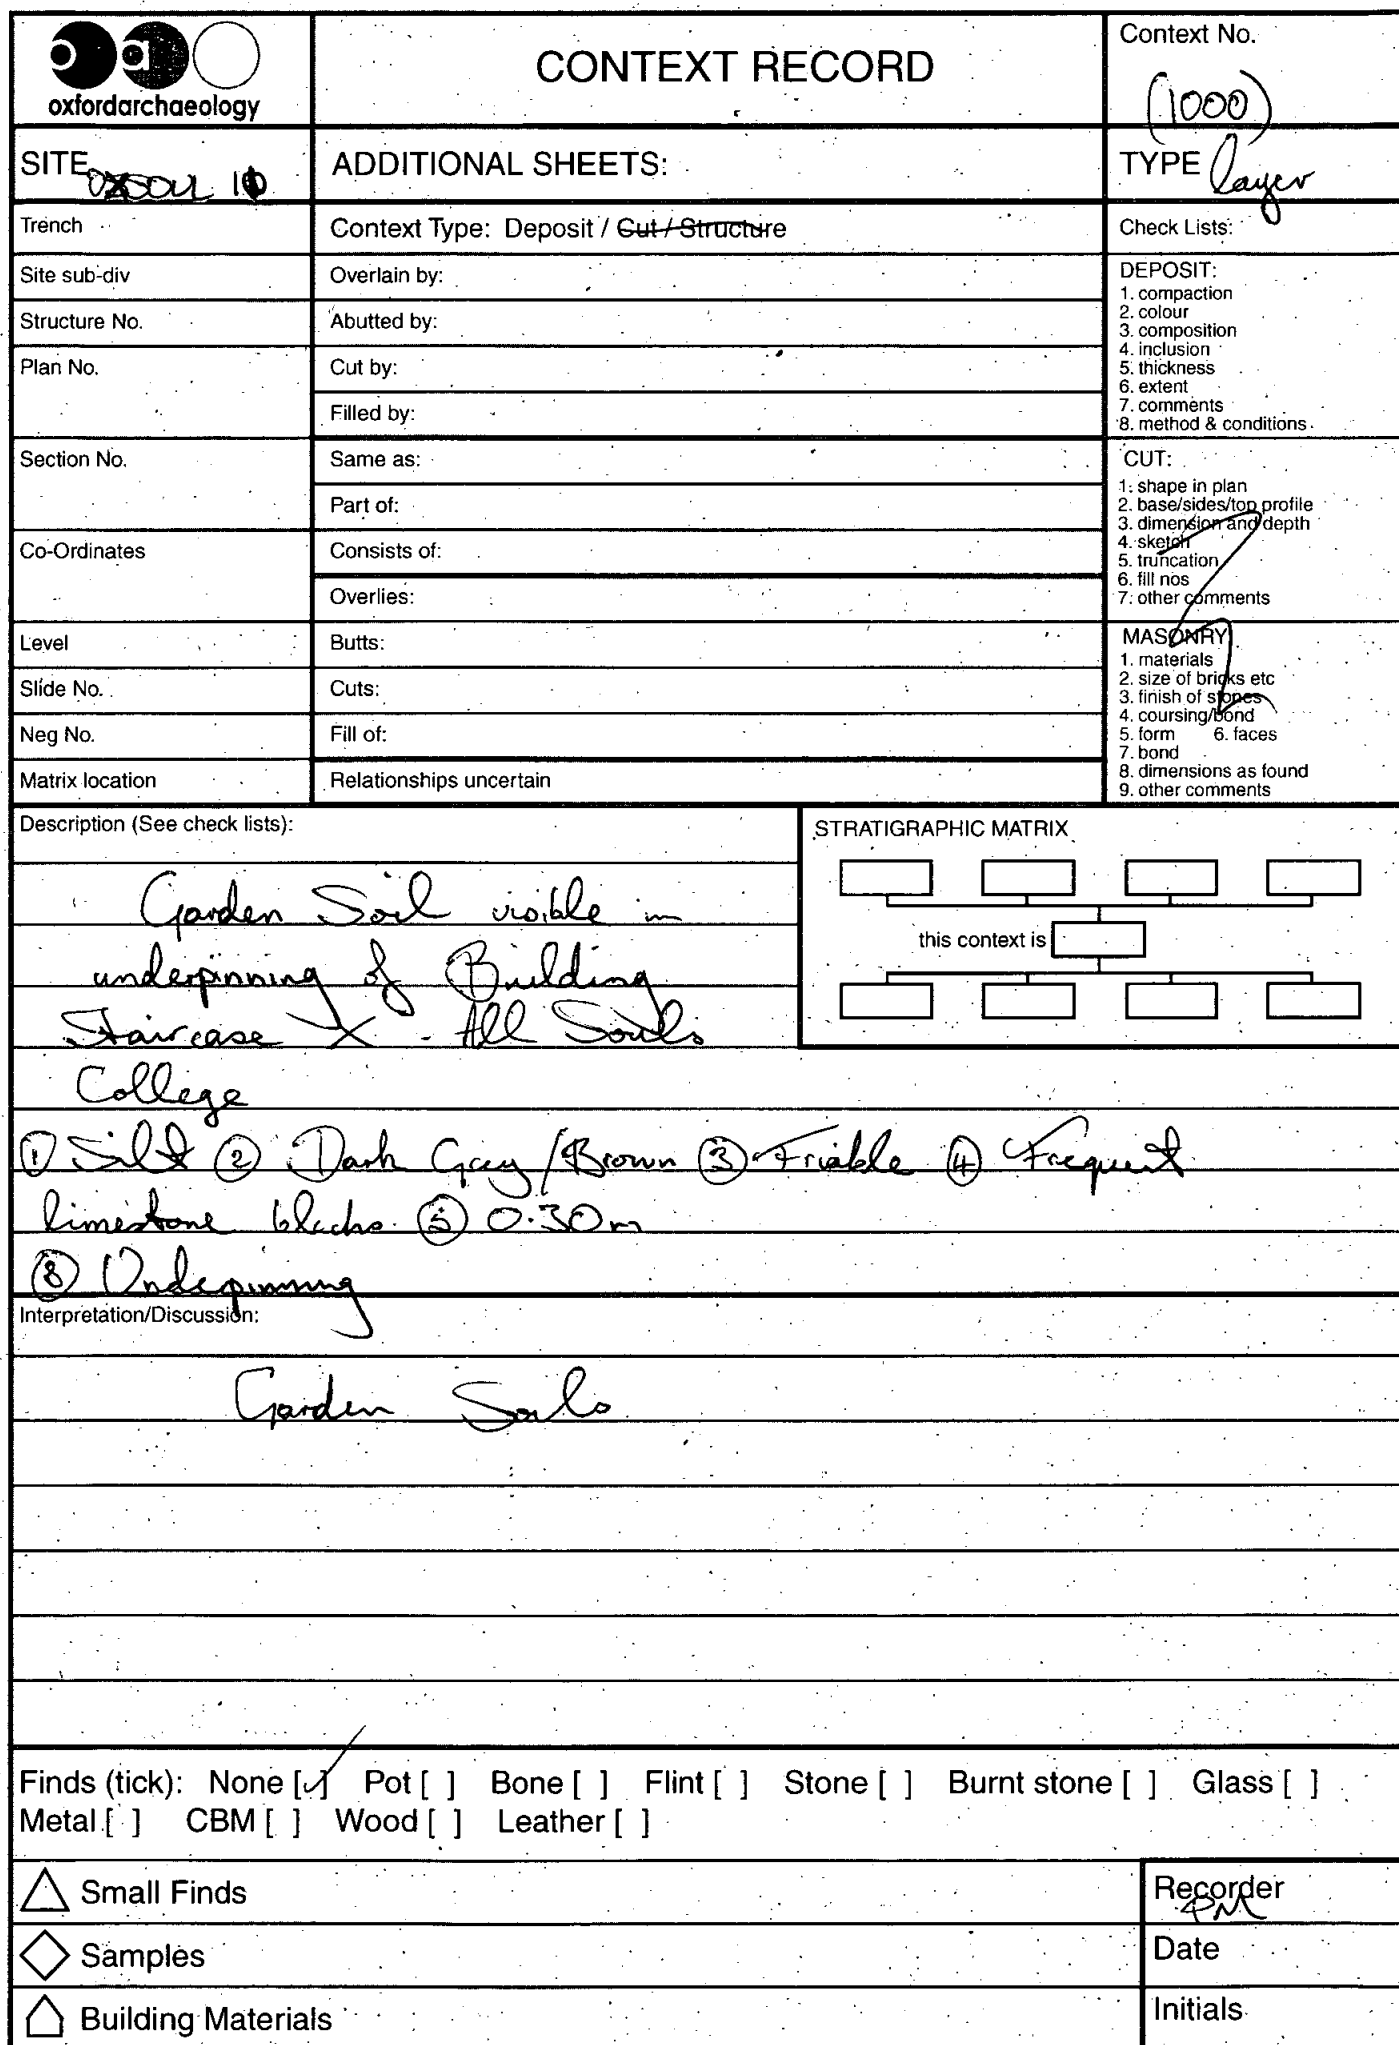 oxfordarchaeology
CONTEXT RECORD
Context No.
(1000)
SITE OXSOUL 10
ADDITIONAL SHEETS:
TYPE layer
Trench
Context Type: Deposit / Cut / Structure
Check Lists:
Site sub-div
Overlain by:
Structure No.
Abutted by:
Plan No.
Cut by:
Filled by:
Section No.
Same as:
Part of:
Co-Ordinates
Consists of:
Overlies:
Level
Butts:
Slide No.
Cuts:
Neg No.
Fill of:
Matrix location
Relationships uncertain
DEPOSIT:
1. compaction
2. colour
3. composition
4. inclusion
5. thickness
6. extent
7. comments
8. method & conditions
CUT:
1. shape in plan
2. base/sides/top profile
3. dimension and depth
4. sketch
5. truncation
6. fill nos
7. other comments
MASONRY
1. materials
2. size of bricks etc
3. finish of stones
4. coursing/bond
5. form 6. faces
7. bond
8. dimensions as found
9. other comments
Description (See check lists):
Garden Soil visible in
underpinning of Building
Staircase X - All Souls
College
① Silt ② Dark Grey/Brown ③ Friable ④ Frequent
limestone blocks ⑤ 0.30m
⑧ Underpinning
STRATIGRAPHIC MATRIX
this context is
Interpretation/Discussion:
Garden Soils
Finds (tick): None [✓] Pot [ ] Bone [ ] Flint [ ] Stone [ ] Burnt stone [ ] Glass [ ]
Metal [ ] CBM [ ] Wood [ ] Leather [ ]
Small Finds
Recorder
PM
Samples
Date
Building Materials
Initials